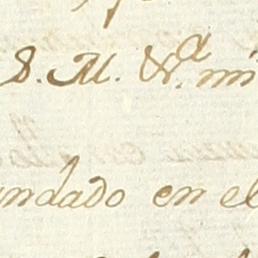 S. M. V.ª mi
undado en el